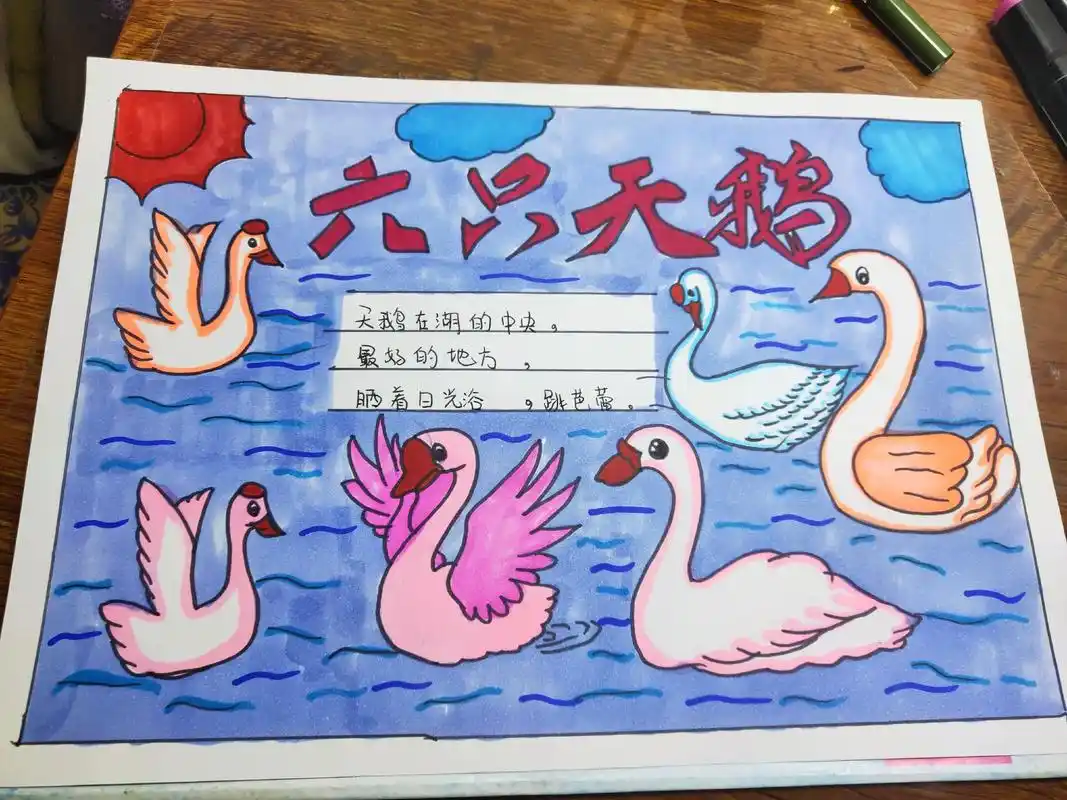 六只天鹅
天鹅在湖的中央。
最好的地方，
晒着日光浴，跳芭蕾。